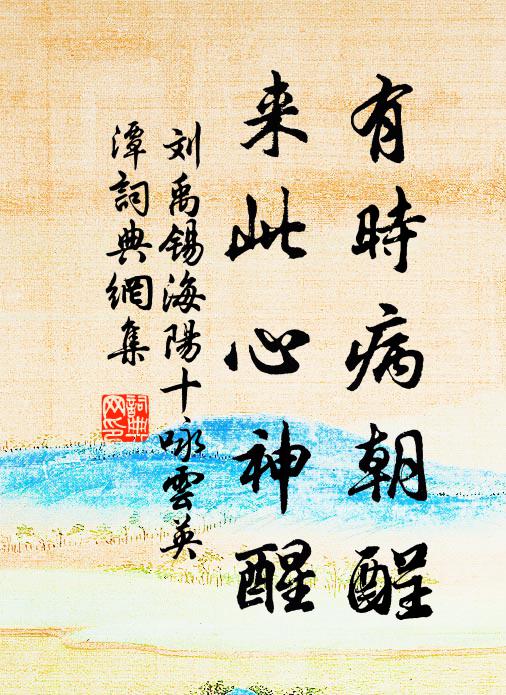 有時病朝酲
来此心神醒
刘禹锡海陽十咏雲英
潭詞典網集